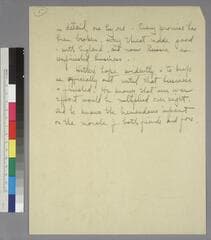 in detail, one by one. Every promise has
been broken. Every threat made good
with England and now Russia un-
unfinished business.
Hitler's hope evidently is to keep
us officially out until that business
is finished. He knows that our war
effort would be multiplied over night.
And he knows the tremendous
on the morale of both friends and foes